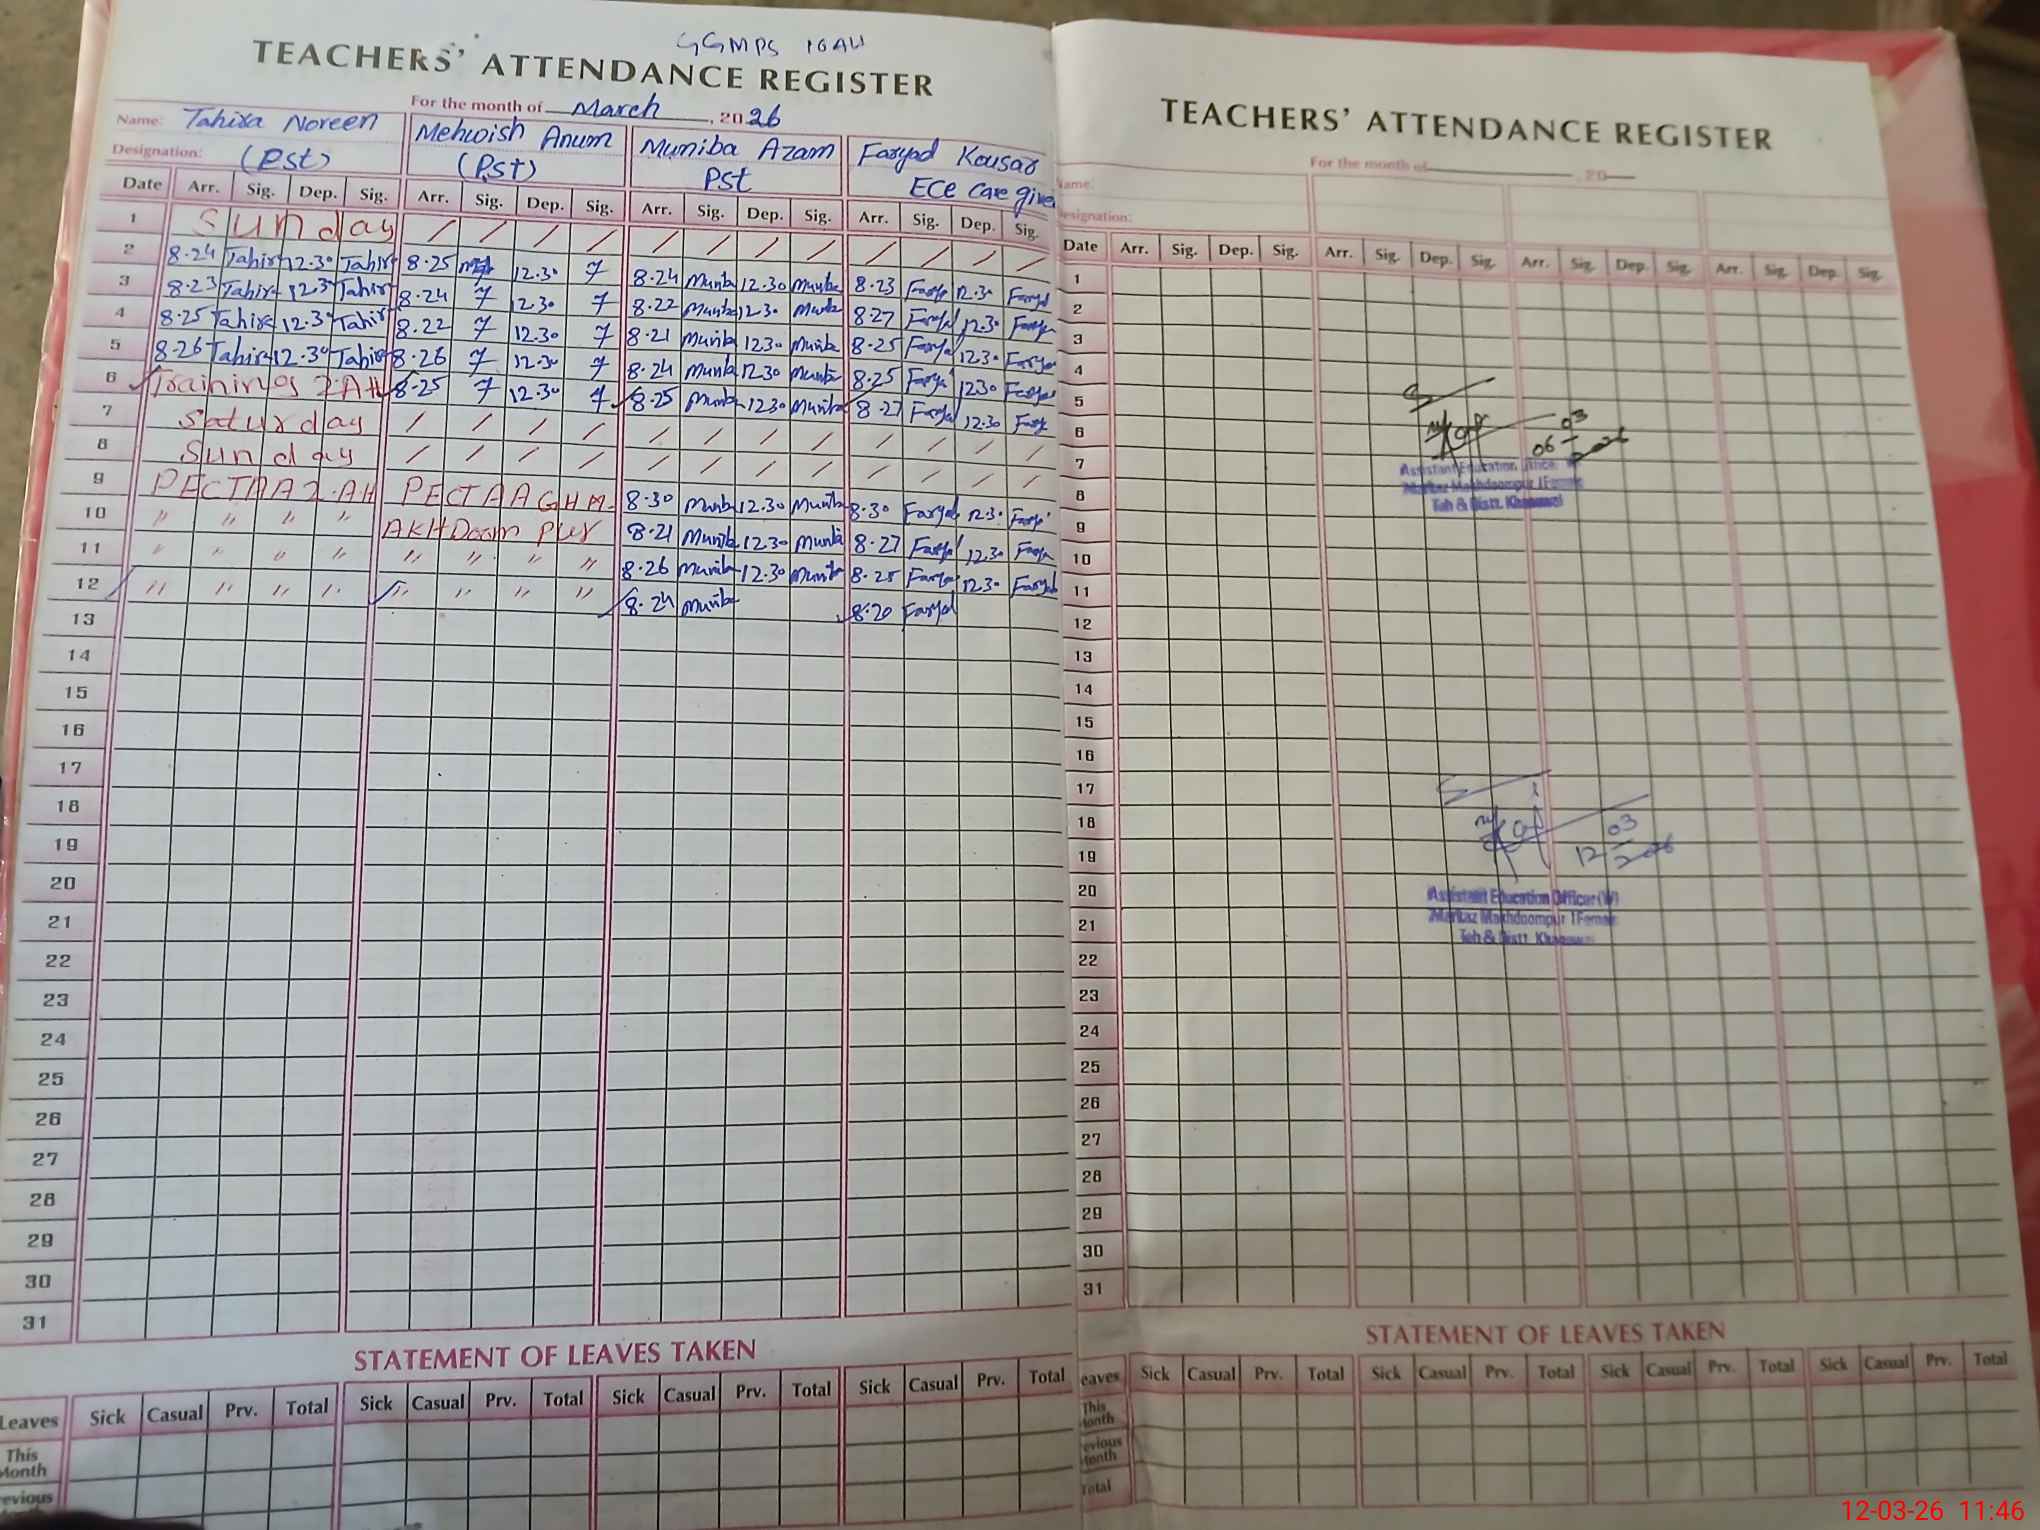 GGMPS 10AH
TEACHERS' ATTENDANCE REGISTER
For the month of March, 2026
Name: Tahira Noreen Mehwish Anum Muniba Azam Faryad Kousar
Designation: (Pst) (Pst) Pst ECE Care giver
Date Arr. Sig. Dep. Sig. Arr. Sig. Dep. Sig. Arr. Sig. Dep. Sig. Arr. Sig. Dep. Sig.
1 Sunday / / / / / / / / / / / /
2 8.24 Tahira 12.30 Tahira 8.25 12.30 8.24 Muniba 12.30 Muniba 8.23 Faryad 12.30 Faryad
3 8.23 Tahira 12.30 Tahira 8.24 12.30 8.22 Muniba 12.30 Muniba 8.27 Faryad 12.30 Faryad
4 8.25 Tahira 12.30 Tahira 8.22 12.30 8.21 Muniba 12.30 Muniba 8.25 Faryad 12.30 Faryad
5 8.26 Tahira 12.30 Tahira 8.26 12.30 8.24 Muniba 12.30 Muniba 8.25 Faryad 12.30 Faryad
6 Trainings 2.AH 8.25 12.30 8.25 Muniba 12.30 Muniba 8.27 Faryad 12.30 Faryad
7 Saturday / / / / / / / / / / / /
8 Sunday / / / / / / / / / / / /
9 PECTAA 2.AH PECTAA GHM 8.30 Muniba 12.30 Muniba 8.30 Faryad 12.30 Faryad
10 " " " " 8.21 Muniba 12.30 Muniba 8.27 Faryad 12.30 Faryad
11 " " " " " " " " 8.26 Muniba 12.30 Muniba 8.25 Faryad 12.30 Faryad
12 " " " " " " " " 8.24 Muniba 8.20 Faryad
13
14
15
16
17
18
19
20
21
22
23
24
25
26
27
28
29
30
31
STATEMENT OF LEAVES TAKEN
Leaves Sick Casual Prv. Total Sick Casual Prv. Total Sick Casual Prv. Total Sick Casual Prv. Total
This
Month
TEACHERS' ATTENDANCE REGISTER
For the month of , 20
Name:
Designation:
Date Arr. Sig. Dep. Sig. Arr. Sig. Dep. Sig. Arr. Sig. Dep. Sig. Arr. Sig. Dep. Sig.
1
2
3
4
5
6
7
8
9
10
11
12
13
14
15
16
17
18
19
20
21
22
23
24
25
26
27
28
29
30
31
06 03 2026
Assistant Education Officer (W)
Markaz Makhdoompur 1 Female
Teh & Distt. Khanewal
12 03 2026
Assistant Education Officer (W)
Markaz Makhdoompur 1 Female
Teh & Distt. Khanewal
STATEMENT OF LEAVES TAKEN
Leaves Sick Casual Prv. Total Sick Casual Prv. Total Sick Casual Prv. Total Sick Casual Prv. Total
This
Month
Previous
Month
Total
12-03-26 11:46